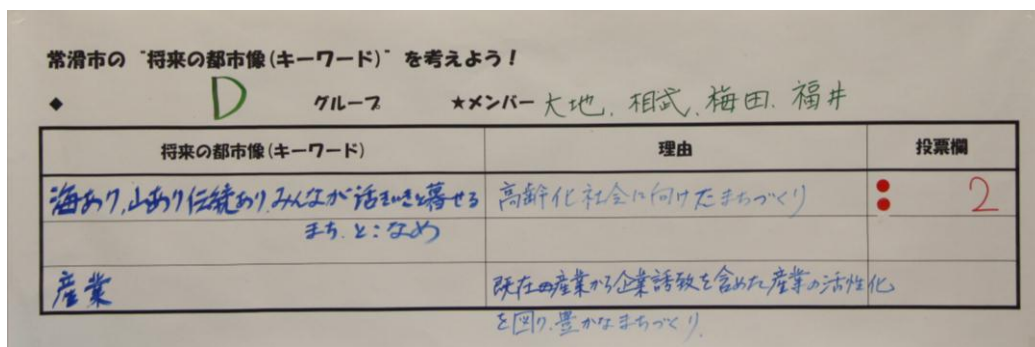 常滑市の "将来の都市像(キーワード)" を考えよう!
◆ D グループ ★メンバー 大地、相武、梅田、福井
将来の都市像(キーワード) 理由 投票欄
海あり、山あり伝統あり、みんなが活きいきと暮せる 高齢化社会に向けたまちづくり 2
まち、とこなめ
産業 既存の産業から企業誘致を含めた産業の活性化
を図り、豊かなまちづくり